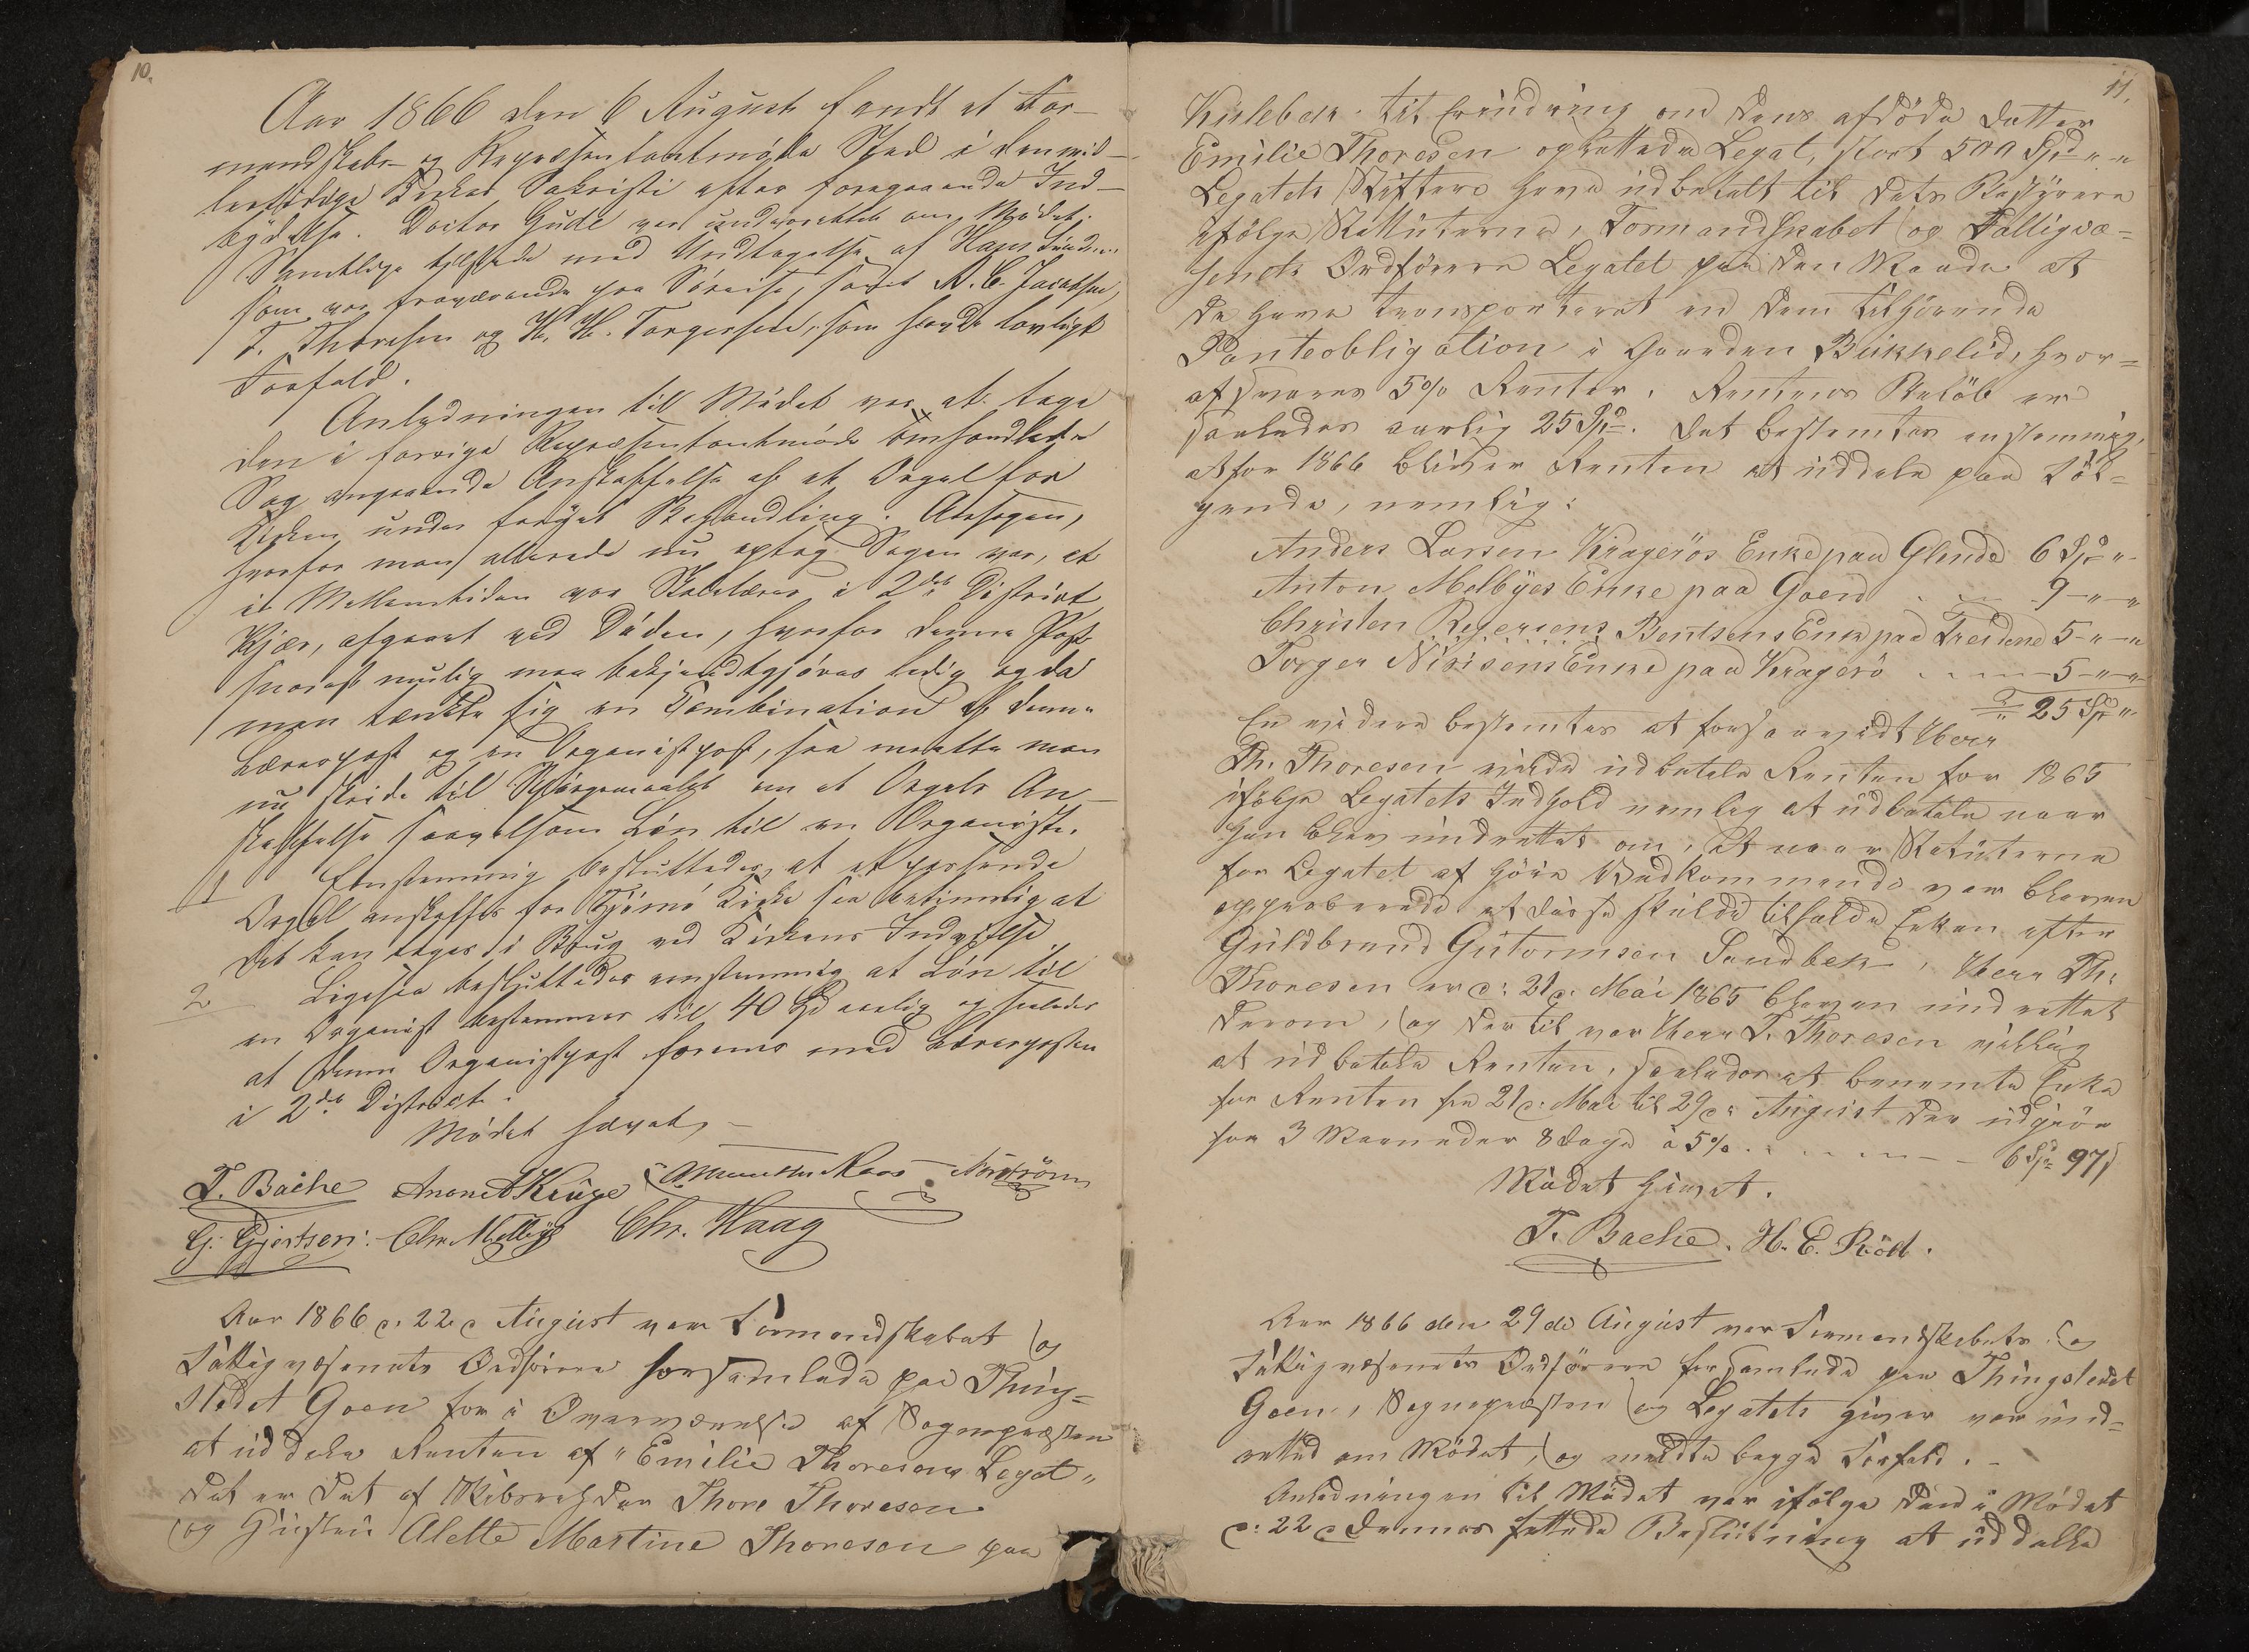 10.
Aar 1866 den 6 August fandt et For-
mandskabs- og Repræsentantmøde Sted i den mid-
lertidige Kirkes Sakristi efter foregaaende Ind-
bydelse. Doctor Gude var underrettet om Mødet.
Samtlige tilstede med Undtagelse af Hans
som var fraværende paa Söreise, samt A. C. Jacobsen,
T. Thoresen og H. H. Torgersen, som havde lovligt
Forfald.
Anledningen till Mödet var at tage
den i forrige Repræsentantmöde omhandlede
Sag angaaende Anskaffelse af et Orgel for
Kirken under fornyet Behandling. Aarsagen,
hvorfor man allerede nu optog Sagen var, at
i Mellemtiden var Skolelærer i 2det District
Kjær, afgaaet ved Döden, hvorfor denne Post
snarest mulig maa bekjendtgjöres ledig og da
man tænkte sig en Combination af denne
Lærerpost og en Organistpost, saa maatte man
nu skride til Spörgsmaalet om et Orgels An-
skaffelse saavelsom Lön til en Organist.
1 Eenstemmig besluttedes, at et passende
Orgel anskaffes for Tjömö Kirke saa betimelig at
det kan tages i Brug ved Kirkens Indvielse
2 Ligesaa besluttedes eenstemmig at Lön til
en Organist bestemmes til 40 Spd aarlig og saaledes
at denne Organistpost forenes med Lærerposten
i 2det District.
Mödet hævet,
T. Bache Anond Krüge Roos Nordström
G. Gjertsen. Chr. Melbÿe Chr. Haag
Aar 1866 d. 22d August var Formandskabet og
Fattigvæsenets Ordförere forsamlede paa Thing-
stedet Goen for i Overværelse af Sognepræsten
at uddele Renten af "Emilie Thoresens Legat"
det er det af Skibsrheder Thore Thoresen
og Hustru Alette Martine Thoresen paa
11.
Kirkebek til Erindring om dens afdöde Datter
Emilie Thoresen oprettede Legat, stort 500 Spd " "
Legatets Stiftere have udbetalt til dets Bestyrere
ifölge Statuterne, Formandskabet og Fattigvæ=
senets Ordförere Legatet paa den Maade at
de have transporteret en dem tilhörende
Panteobligation i Gaarden Bükkelid, hvor=
af svares 5% Renter. Rentens Belöb er
saaledes aarlig 25 Spd. Det bestemtes enstemmig,
at for 1866 bliver Renten at uddele paa föl=
gende, nemlig:
Anders Larsen Kragerös Enke paa Glende 6 Spd "
Anton Melbÿes Enke paa Goen 9 - " - "
Christen Bentsens Enke paa Treidene 5 - " - "
Torger Nirisens Enke paa Kragerö 5 - " - "
25 Spd "
En videre bestemtes at forsaavidt Herr
Th. Thoresen vilde udbetale Renten for 1865
ifölge Legatets Indhold nemlig at udbetale naar
han blev underrettet om, at naar Statuterne
for Legatet af höie Vedkommende var bleven
approberede at disse skulde tilfalde Enken efter
Guldbrand Gutormsen Sandbek. Herr Th.
Thoresen er d. 21d. Mai 1865 bleven underrettet
derom, og dertil var Herr T. Thoresen villig
at udbetale Renten, saaledes at benævnte Enke
faar Renten fra 21d. Mai til 29d. August der udgjör
for 3 Maaneder 8 Dage à 5% 6 Spd 97 ß
Mödet hævet.
T. Bache. H. E. Röd.
Aar 1866 den 29de August var Formandskabet og
Fattigvæsenets Ordförere forsamlede paa Thingstedet
Goen, Sognepræsten og Legatets giver var und=
rettet om Mödet, og meldte begge Forfald.
Anledningen til Mödet var ifölge den i Mödet
d. 22d dennes fattede Beslutning at uddelle